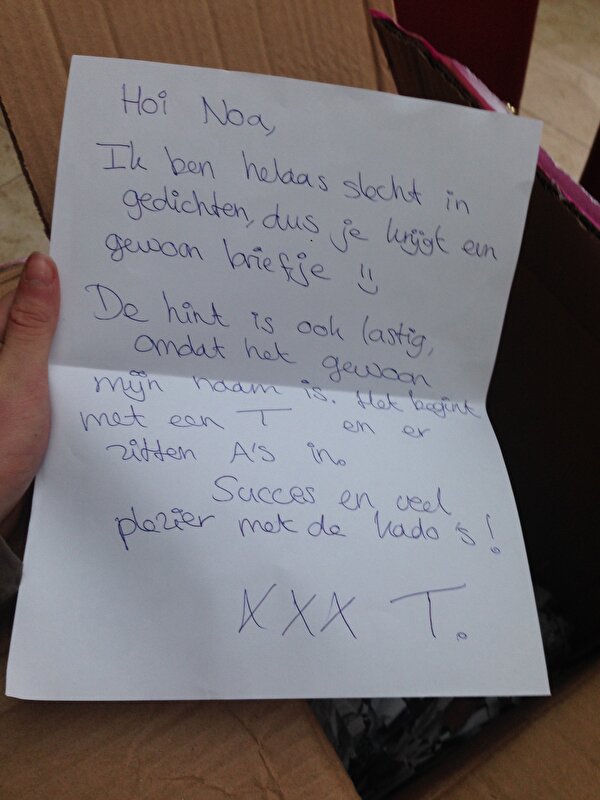 Hoi Noa,
Ik ben helaas slecht in
gedichten, dus je krijgt een
gewoon briefje :)
De hint is ook lastig,
omdat het gewoon
mijn naam is. Het begint
met een T en er
zitten A's in.
Succes en veel
plezier met de kado's!
XXX T.